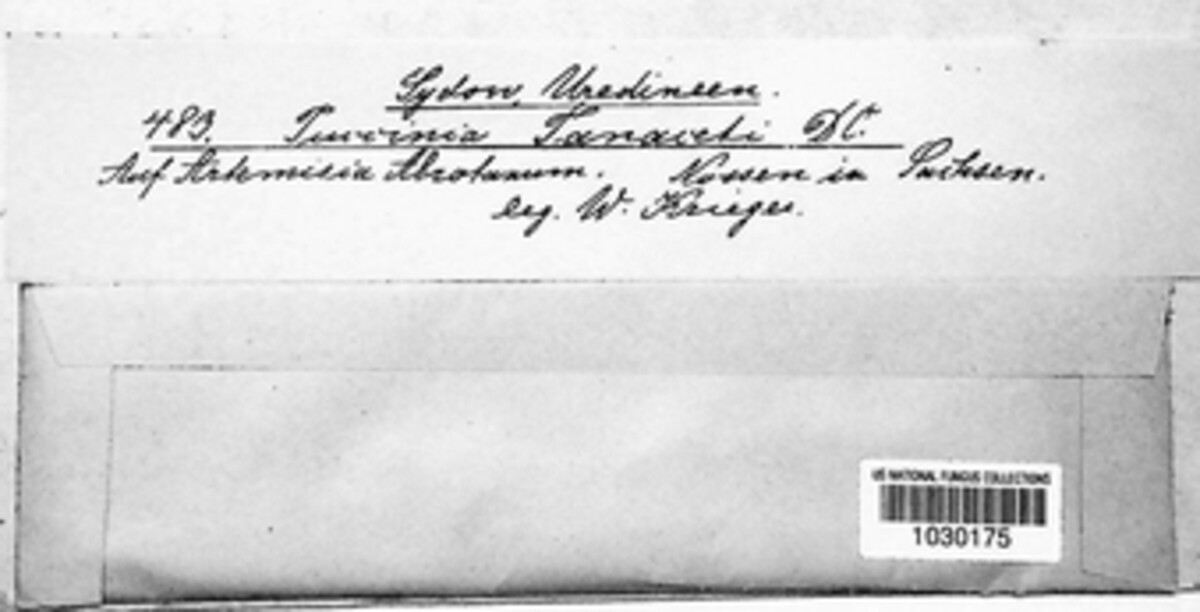 Sydow, Uredineen.
483. Puccinia Tanaceti DC.
Auf Artemisia Abrotanum. Nossen in Sachsen.
leg. W. Krieger.
US NATIONAL FUNGUS COLLECTIONS
1030175